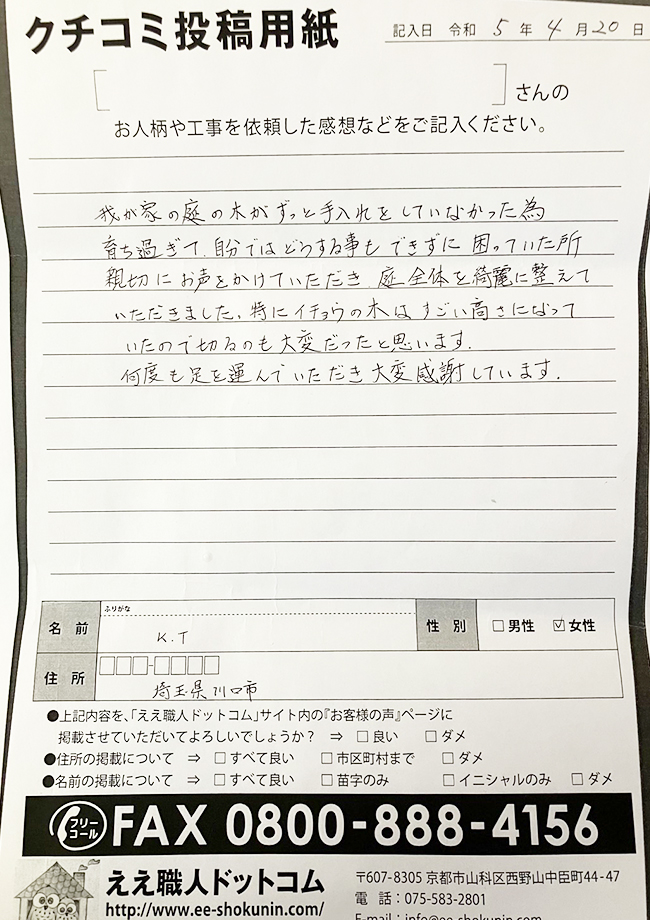 クチコミ投稿用紙
記入日 令和 5 年 4 月 20 日
[ ] さんの
お人柄や工事を依頼した感想などをご記入ください。
我が家の庭の木がずっと手入れをしていなかった為
育ち過ぎて、自分ではどうする事もできずに困っていた所
親切にお声をかけていただき 庭全体を綺麗に整えて
いただきました。特にイチョウの木はすごい高さになって
いたので切るのも大変だったと思います。
何度も足を運んでいただき大変感謝しています。
ふりがな
名前 K.T 性別 □男性 ☑女性
住所 □□□-□□□□
埼玉県川口市
●上記内容を、「ええ職人ドットコム」サイト内の『お客様の声』ページに
掲載させていただいてよろしいでしょうか？ ⇒ □良い □ダメ
●住所の掲載について ⇒ □すべて良い □市区町村まで □ダメ
●名前の掲載について ⇒ □すべて良い □苗字のみ □イニシャルのみ □ダメ
フリーコール FAX 0800-888-4156
ええ職人ドットコム
http://www.ee-shokunin.com/
〒607-8305 京都市山科区西野山中臣町44-47
電 話：075-583-2801
E-mail：info@ee-shokunin.com